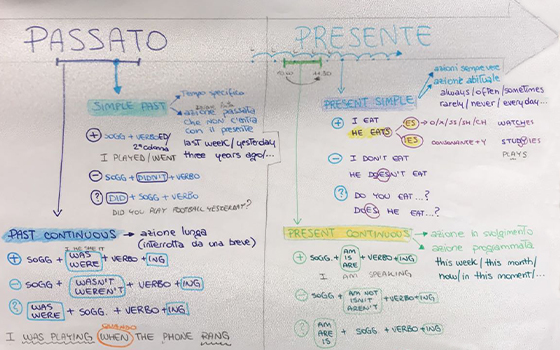 PASSATO
SIMPLE PAST
Tempo specifico
azione passata
che NON c'entra
con il presente
last week/yesterday
three years ago/...
+ SOGG + VERBOED/
2ª colonna
I PLAYED/WENT
- SOGG + DIDN'T + VERBO
? DID + SOGG + VERBO
DID YOU PLAY FOOTBALL YESTERDAY?
PAST CONTINUOUS → azione lunga
(interrotta da una breve)
I HE SHE IT
+ SOGG + WAS WERE + VERBO + ING
- SOGG + WASN'T WEREN'T + VERBO + ING
? WAS WERE + SOGG. + VERBO + ING
QUANDO
I WAS PLAYING WHEN THE PHONE RANG
PRESENTE
PRESENT SIMPLE
azioni sempre vere
azione abituale
always/often/sometimes
rarely/never/everyday...
+ I EAT
HE EATS
ES → O/X/SS/SH/CH WATCHES
IES CONSONANTE+Y STUDIES
PLAYS
- I DON'T EAT
HE DOESN'T EAT
? DO YOU EAT...?
DOES HE EAT...?
PRESENT CONTINUOUS
azione in svolgimento
azione programmata
this week/this month/
now/in this moment/...
+ SOGG. + AM IS ARE + VERBO + ING
I AM SPEAKING
- SOGG + AM NOT ISN'T AREN'T + VERBO + ING
? AM ARE IS + SOGG + VERBO + ING